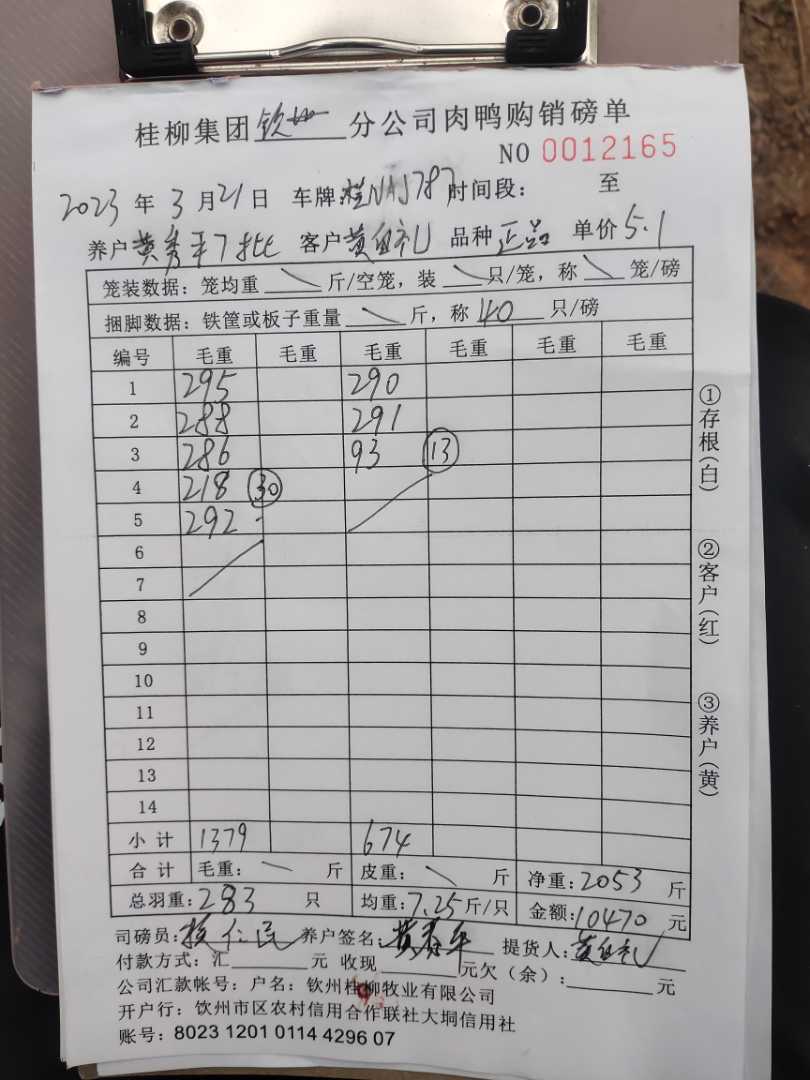 桂柳集团钦州分公司肉鸭购销磅单
NO 0012165
2023年3月21日 车牌:桂NAJ787时间段: 至
养户黄秀平7批 客户黄 礼 品种正品 单价5.1
笼装数据:笼均重 \ 斤/空笼,装 \ 只/笼,称 \ 笼/磅
捆脚数据:铁筐或板子重量 \ 斤,称 40 只/磅
编号 毛重 毛重 毛重 毛重 毛重 毛重
1 295 290
2 288 291
3 286 93 13
4 218 30
5 292
6
7
8
9
10
11
12
13
14
小计 1379 674
合计 毛重: \ 斤 皮重: \ 斤 净重:2053 斤
总羽重:283 只 均重:7.25斤/只 金额:10470 元
司磅员: 仁民 养户签名:黄秀平 提货人:黄 礼
付款方式:汇 元 收现 元欠(余): 元
公司汇款帐号:户名:钦州桂柳牧业有限公司
开户行:钦州市区农村信用合作联社大垌信用社
账号:8023 1201 0114 4296 07
①存根(白)
②客户(红)
③养户(黄)